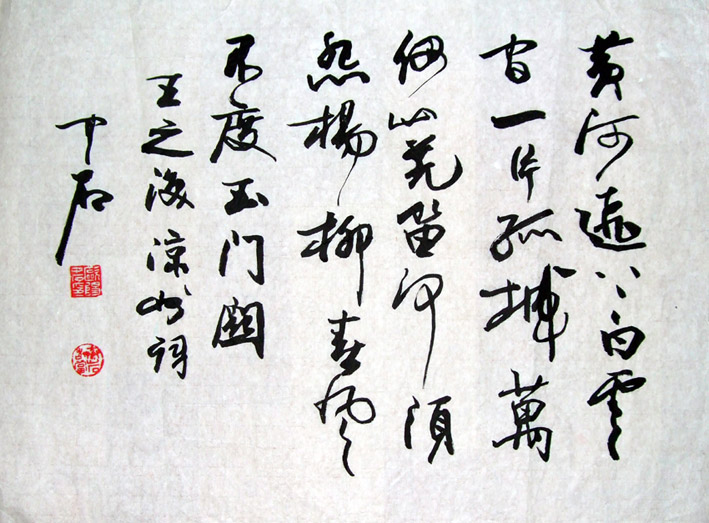 黄河遠上白雲
间一片孤城萬
仞山羌笛何須
怨楊柳春風
不度玉门関
王之涣凉州词
中石